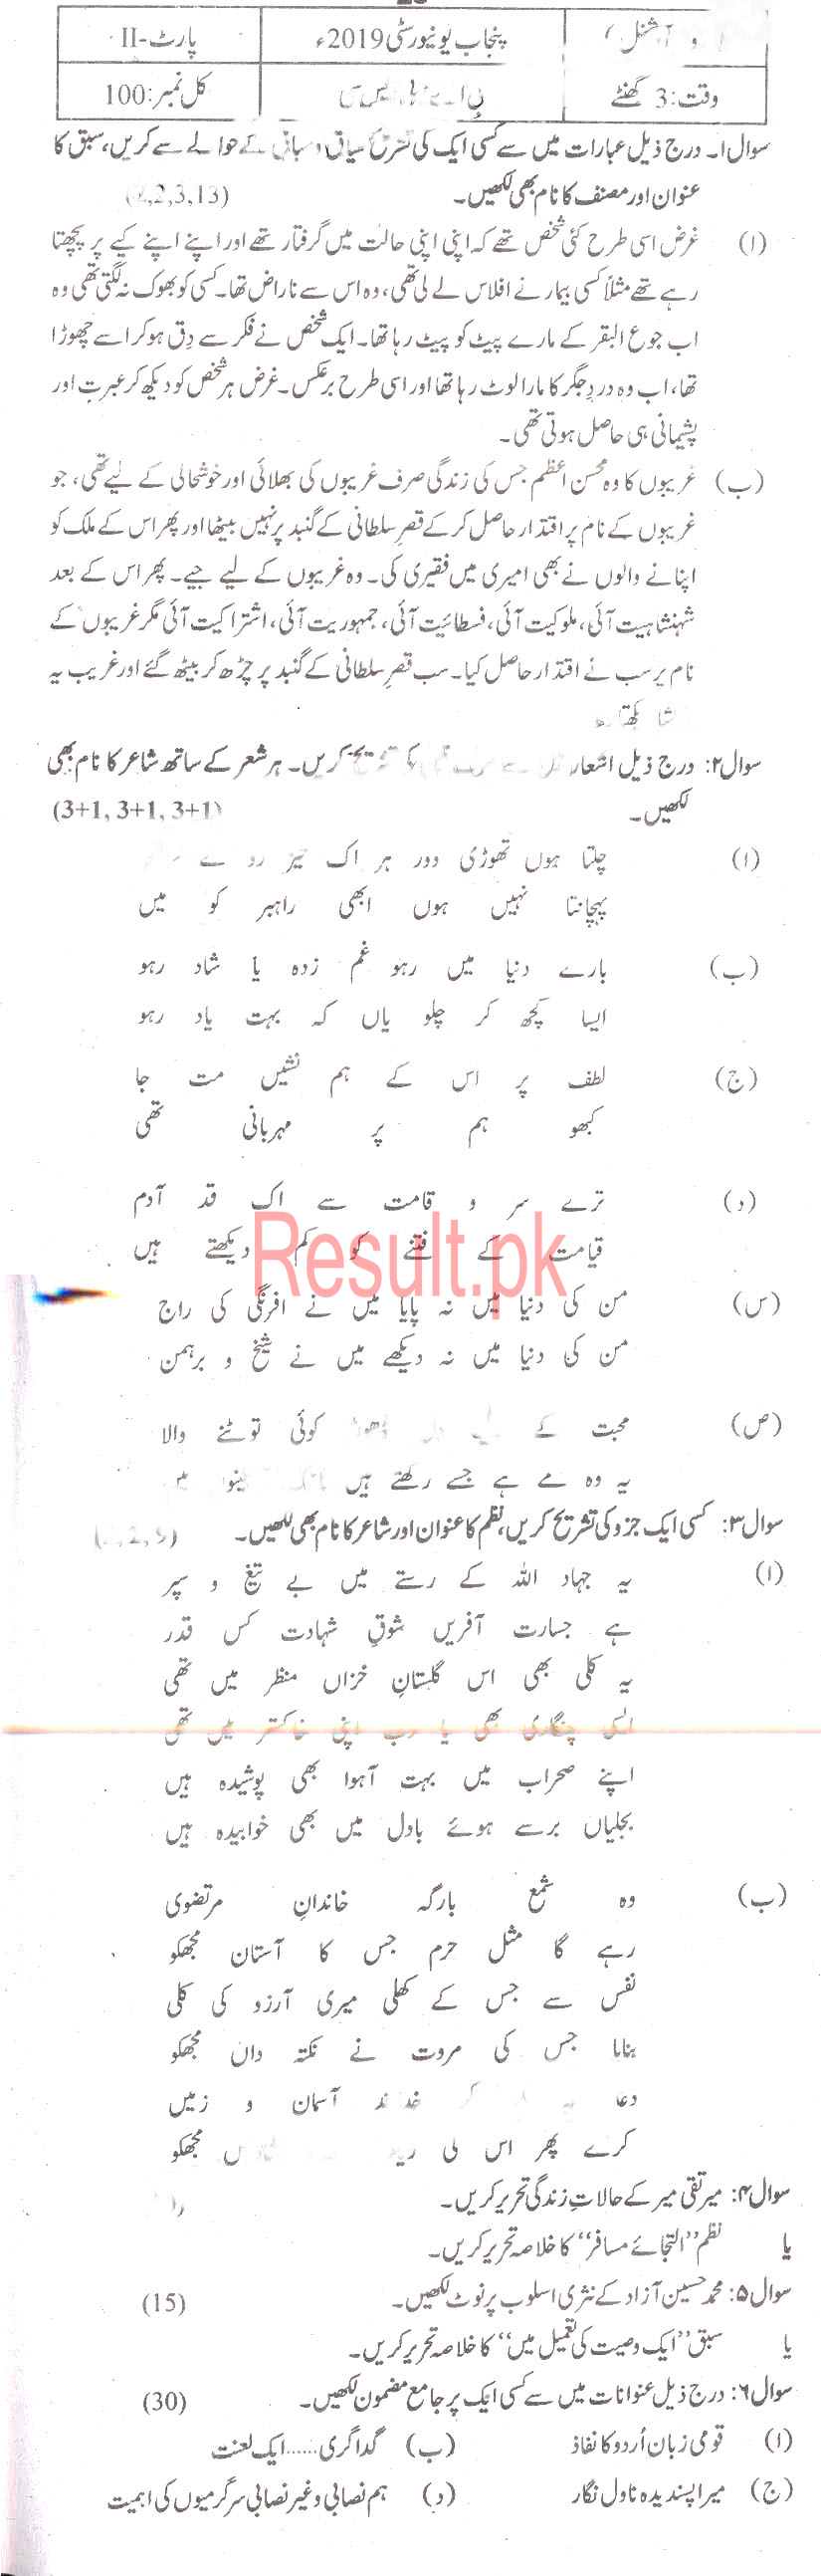 پنجاب یونیورسٹی 2019ء
پارٹ-II
وقت: 3 گھنٹے
کل نمبر: 100
سوال ۱۔ درج ذیل عبارات میں سے کسی ایک کی تشریح سیاق و سباق کے حوالے سے کریں، سبق کا
عنوان اور مصنف کا نام بھی لکھیں۔ (2,2,3,13)
(۱) غرض اسی طرح کئی شخص تھے کہ اپنی اپنی حالت میں گرفتار تھے اور اپنے اپنے کیے پر پچھتا
رہے تھے مثلاً کسی بیمار نے افلاس لے لی تھی، وہ اس سے ناراض تھا۔ کسی کو بھوک نہ لگتی تھی وہ
اب جوع البقر کے مارے پیٹ کو پیٹ رہا تھا۔ ایک شخص نے فکر سے دق ہو کر اسے چھوڑا
تھا، اب وہ درد جگر کا مارا لوٹ رہا تھا اور اسی طرح برعکس۔ غرض ہر شخص کو دیکھ کر عبرت اور
پشیمانی ہی حاصل ہوتی تھی۔
(ب) غریبوں کا وہ محسن اعظم جس کی زندگی صرف غریبوں کی بھلائی اور خوشحالی کے لیے تھی، جو
غریبوں کے نام پر اقتدار حاصل کر کے قصر سلطانی کے گنبد پر نہیں بیٹھا اور پھر اس کے ملک کو
اپنانے والوں نے بھی امیری میں فقیری کی۔ وہ غریبوں کے لیے جیے۔ پھر اس کے بعد
شہنشاہیت آئی، ملوکیت آئی، فسطائیت آئی، جمہوریت آئی، اشتراکیت آئی مگر غریبوں کے
نام پر سب نے اقتدار حاصل کیا۔ سب قصرِ سلطانی کے گنبد پر چڑھ کر بیٹھ گئے اور غریب یہ
سوال ۲: درج ذیل اشعار کی تشریح کریں۔ ہر شعر کے ساتھ شاعر کا نام بھی
لکھیں۔ (3+1, 3+1, 3+1)
(۱) چلتا ہوں تھوڑی دور ہر اک تیز رو کے
پہچانتا نہیں ہوں ابھی راہبر کو میں
(ب) بارے دنیا میں رہو غم زدہ یا شاد رہو
ایسا کچھ کر چلو یاں کہ بہت یاد رہو
(ج) لطف پر اس کے ہم نشیں مت جا
کبھو ہم پر مہربانی تھی
(د) ترے سر و قامت سے اک قد آدم
قیامت کے فتنے کو کم دیکھتے ہیں
Result.pk
(س) من کی دنیا میں نہ پایا میں نے افرنگی کی راج
من کی دنیا میں نہ دیکھے میں نے شیخ و برہمن
(ص) محبت کے کوئی توٹنے والا
یہ وہ مے ہے جسے رکھتے ہیں
سوال ۳: کسی ایک جزو کی تشریح کریں، نظم کا عنوان اور شاعر کا نام بھی لکھیں۔
(۱) یہ جہاد اللہ کے رستے میں بے تیغ و سپر
ہے جسارت آفریں شوقِ شہادت کس قدر
یہ کلی بھی اس گلستانِ خزاں منظر میں تھی
ایسی چنگاری بھی یا رب اپنی خاکستر میں تھی
اپنے صحراب میں بہت آہوا بھی پوشیدہ ہیں
بجلیاں برسے ہوئے بادل میں بھی خوابیدہ ہیں
(ب) وہ شمع بارگہ خاندانِ مرتضوی
رہے گا مثل حرم جس کا آستان مجھکو
نفس سے جس کے کھلی میری آرزو کی کلی
بنایا جس کی مروت نے نکتہ داں مجھکو
دعا آسمان و زمیں
کرے پھر اس کی مجھکو
سوال ۴: میر تقی میر کے حالاتِ زندگی تحریر کریں۔
یا نظم "التجائے مسافر" کا خلاصہ تحریر کریں۔
سوال ۵: محمد حسین آزاد کے نثری اسلوب پر نوٹ لکھیں۔ (15)
یا سبق "ایک وصیت کی تعمیل میں" کا خلاصہ تحریر کریں۔
سوال ۶: درج ذیل عنوانات میں سے کسی ایک پر جامع مضمون لکھیں۔ (30)
(۱) قومی زبان اُردو کا نفاذ (ب) گداگری......ایک لعنت
(ج) میرا پسندیدہ ناول نگار (د) ہم نصابی و غیر نصابی سرگرمیوں کی اہمیت